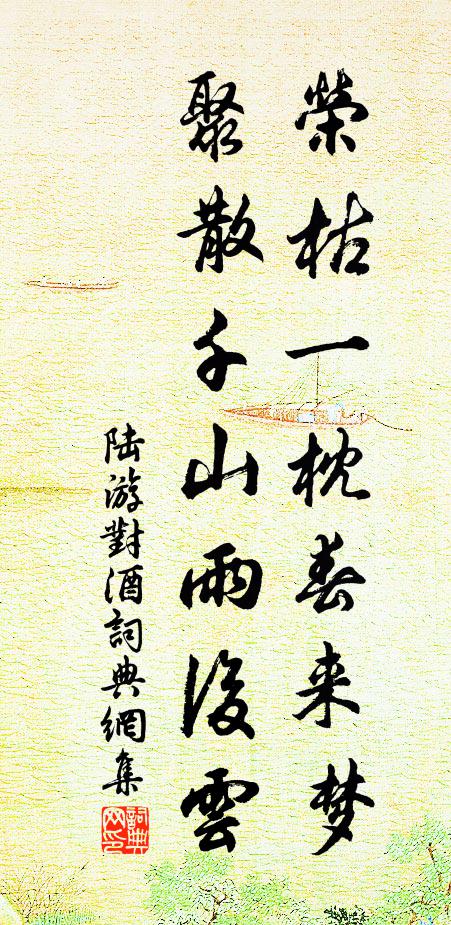 榮枯一枕春来梦
聚散千山雨後雲
陆游對酒詞典網集
詞典网印